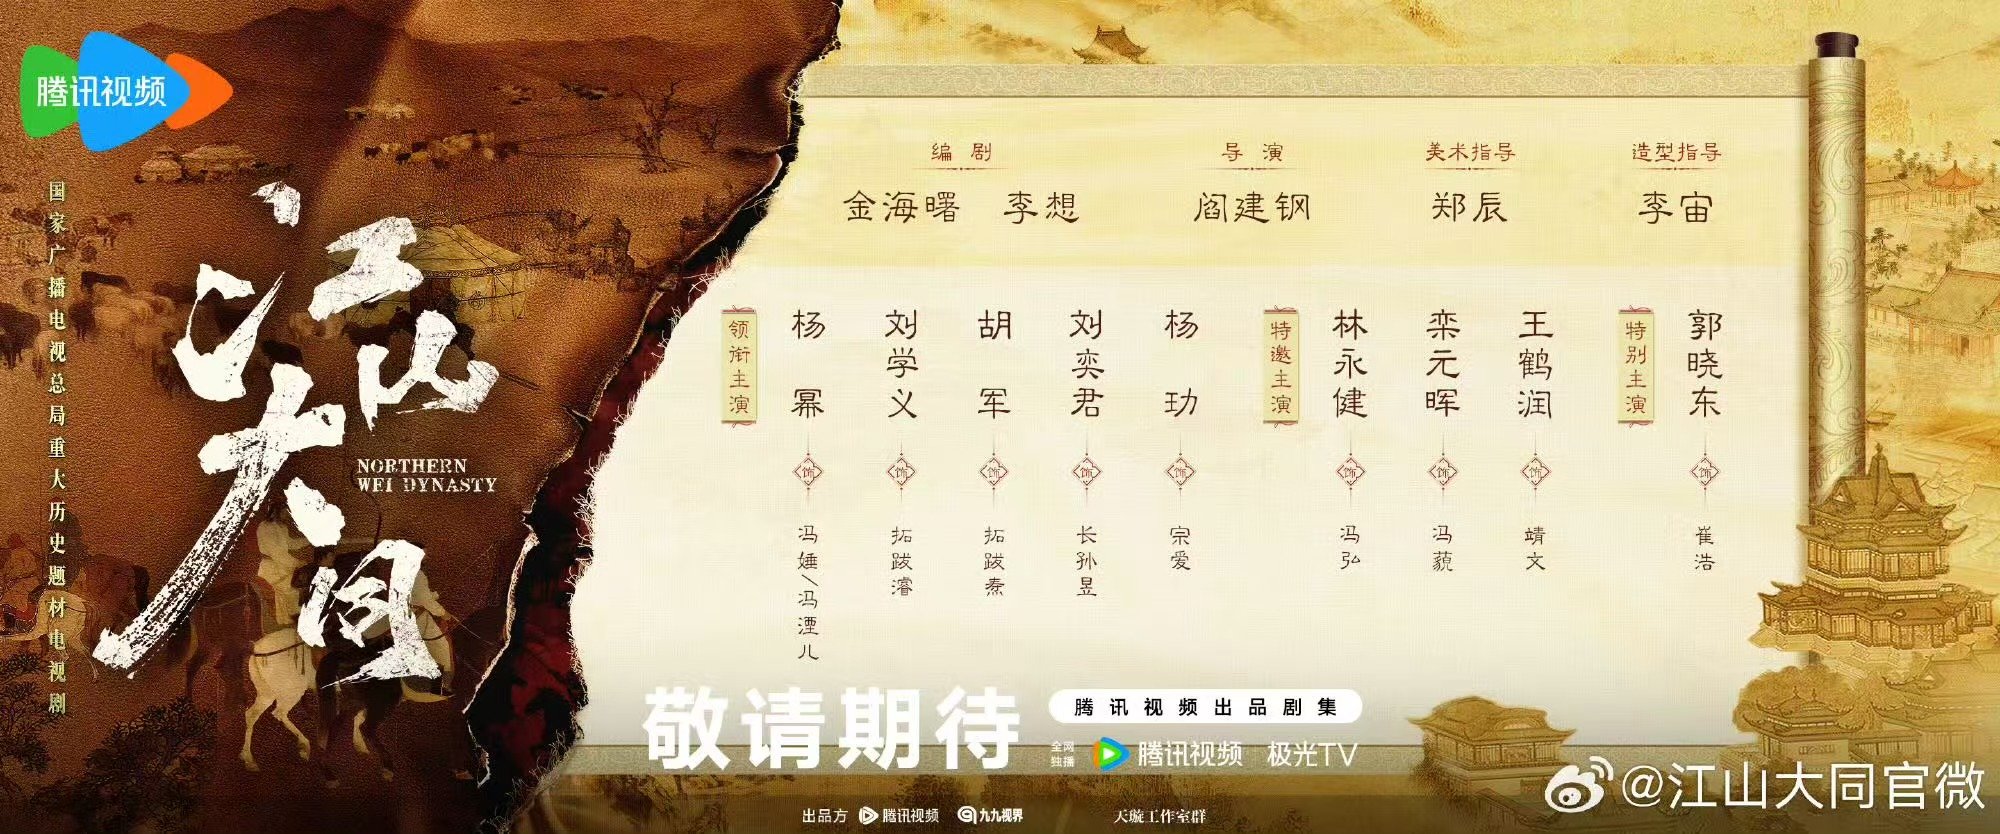 腾讯视频
国家广播电视总局重大历史题材电视剧
江山大同
NORTHERN
WEI DYNASTY
编剧
金海曙 李想
导演
阎建钢
美术指导
郑辰
造型指导
李宙
领衔主演
杨幂 饰 冯娷/冯湮儿
刘学义 饰 拓跋濬
胡军 饰 拓跋焘
刘奕君 饰 长孙昱
杨玏 饰 宗爱
特邀主演
林永健 饰 冯弘
栾元晖 饰 冯藐
王鹤润 饰 靖文
特别主演
郭晓东 饰 崔浩
敬请期待
腾讯视频出品剧集
全网独播 腾讯视频 极光TV
出品方 腾讯视频 九九视界 天璇工作室群
@江山大同官微